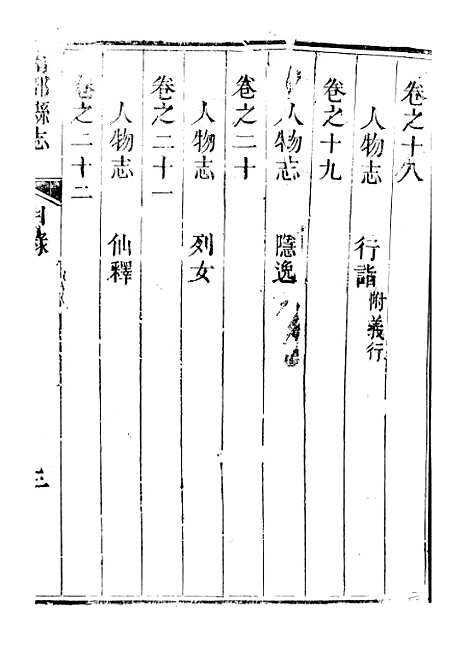 卷之十八
人物志 行誼 附義行
卷之十九
人物志 隱逸
卷之二十
人物志 列女
卷之二十一
人物志 仙釋
卷之二十二
部縣志 目錄 三